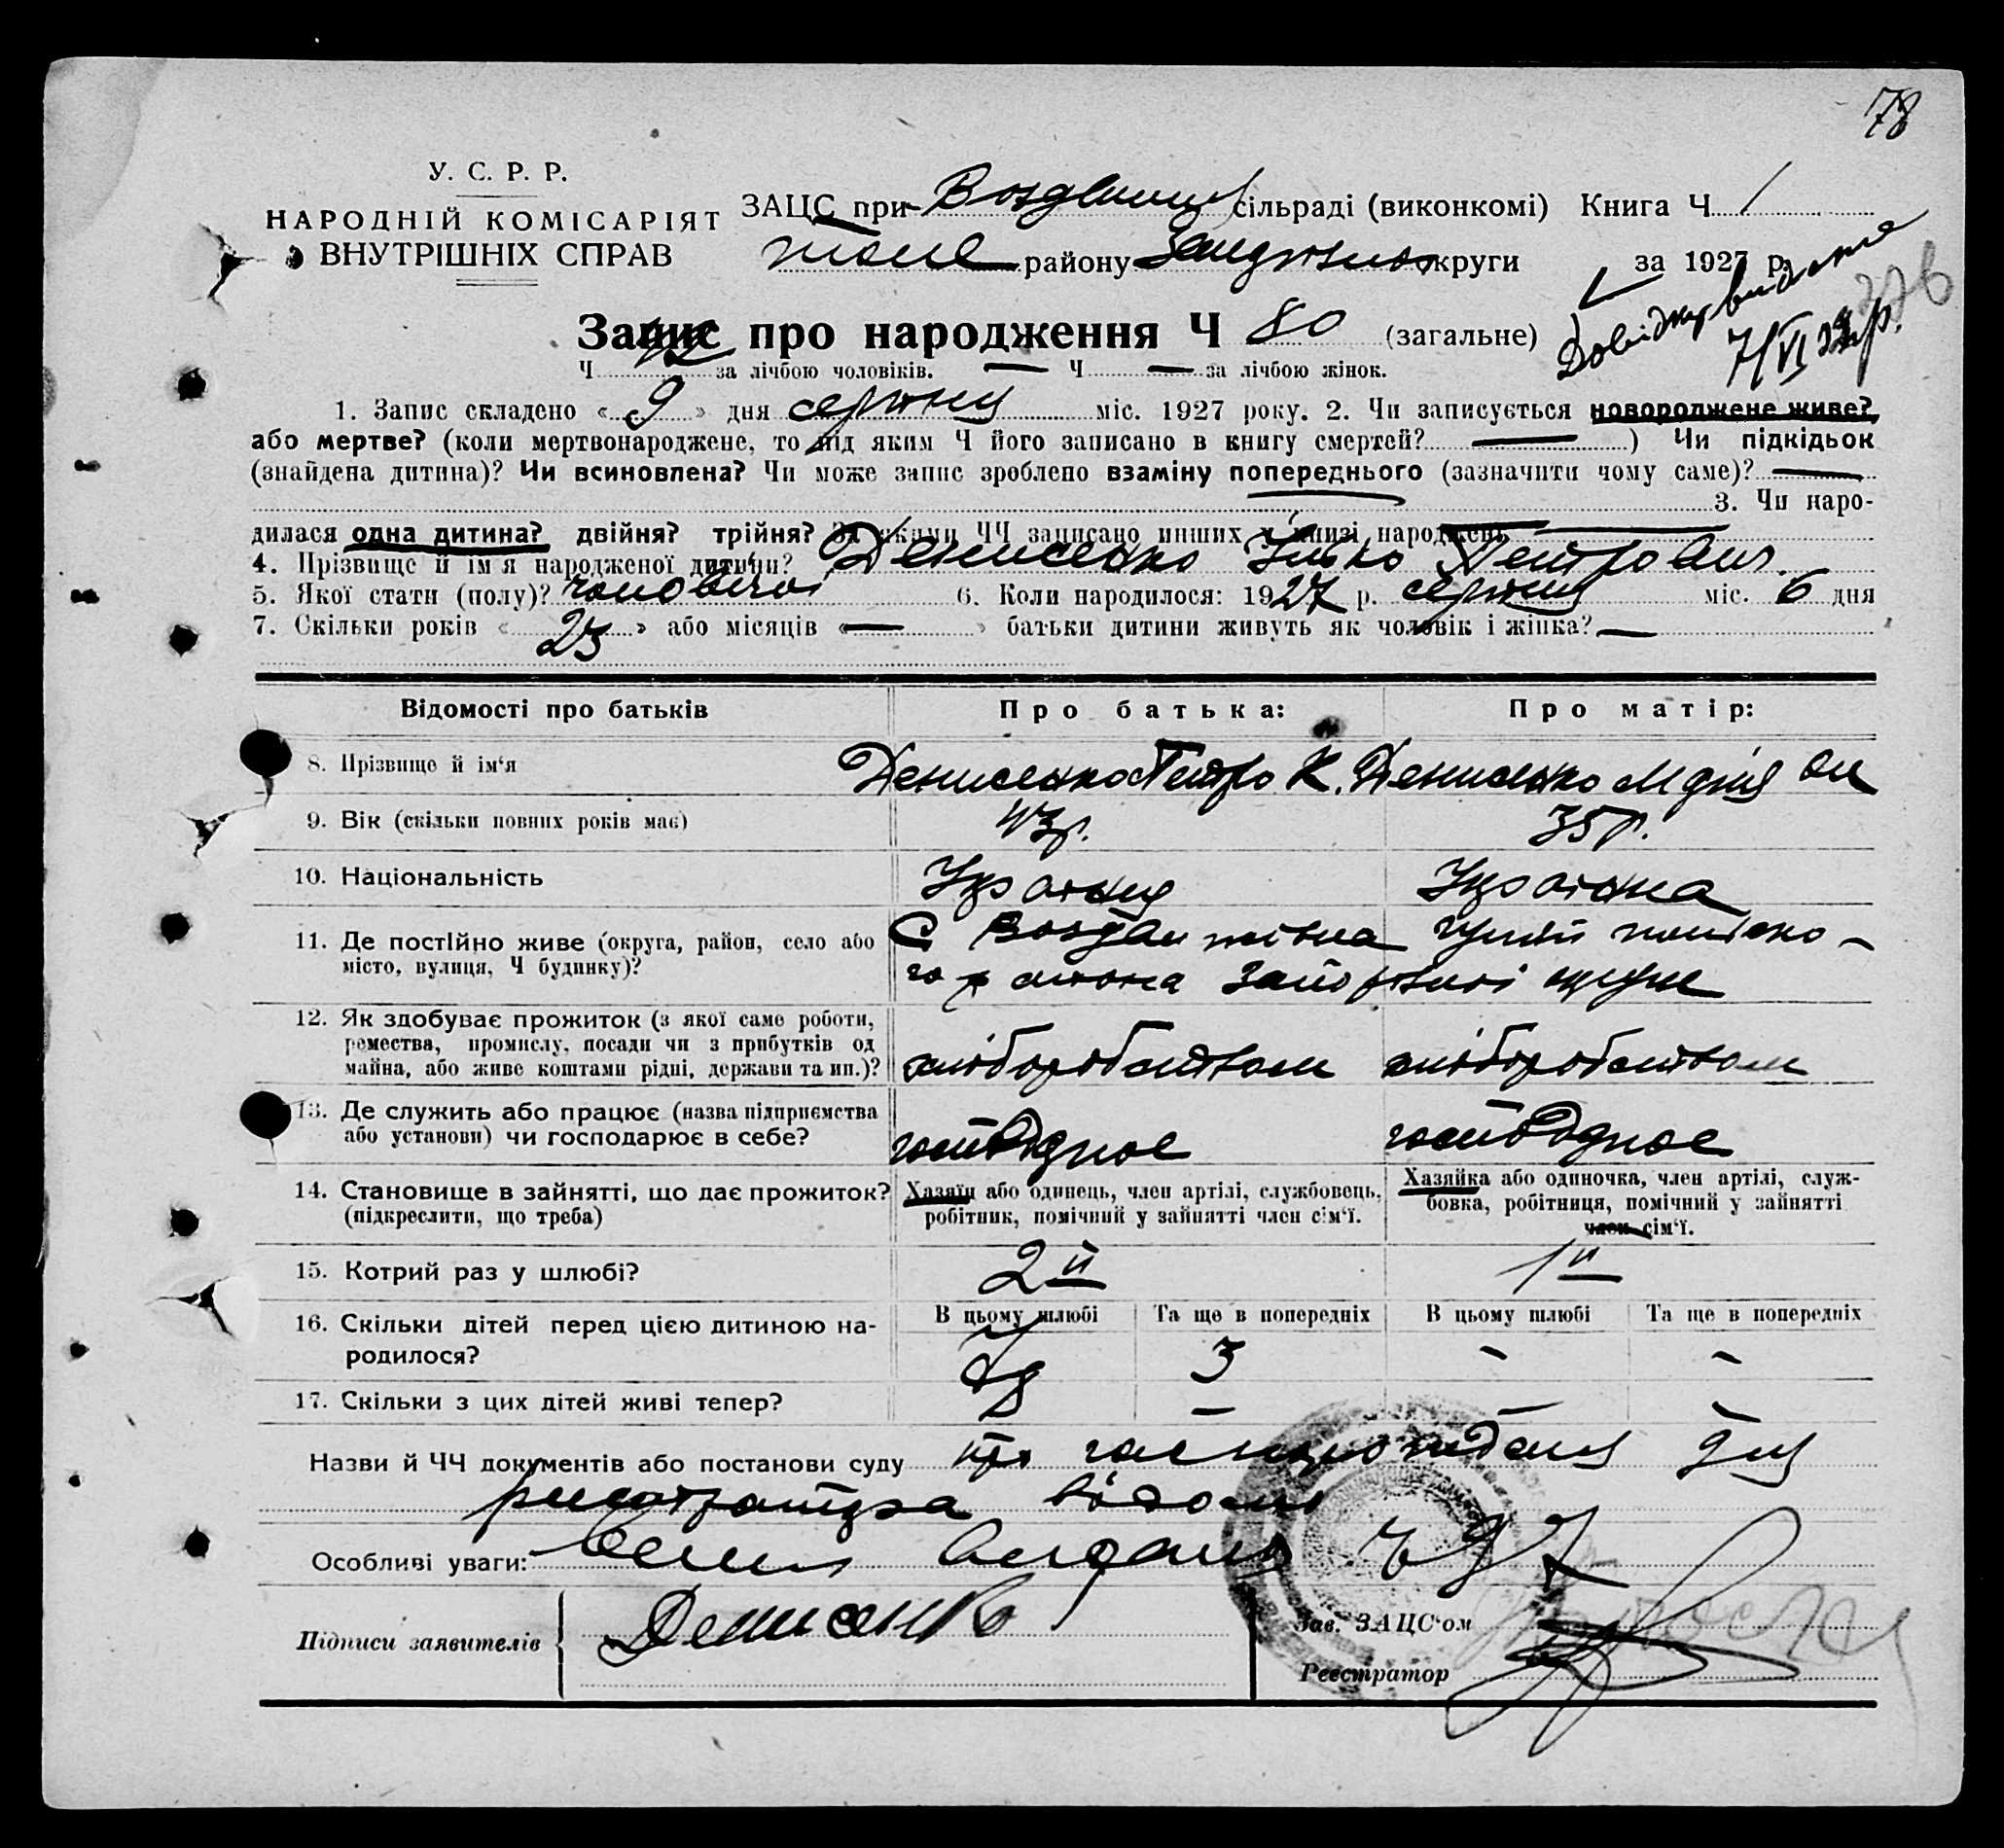 78
У. С. Р. Р.
НАРОДНІЙ КОМІСАРІЯТ
ВНУТРІШНІХ СПРАВ
ЗАЦС при сільраді (виконкомі) Книга Ч 1
району округи за 1927 р.
Довідку видано
7/VI
Запис про народження Ч 80 (загальне)
Ч 42 за лічбою чоловіків. — Ч — за лічбою жінок.
1. Запис складено « 9 » дня серпня міс. 1927 року. 2. Чи записується новороджене живе?
або мертве? (коли мертвонароджене, то під яким Ч його записано в книгу смертей? — ) Чи підкідьок
(знайдена дитина)? Чи всиновлена? Чи може запис зроблено взаміну попереднього (зазначити чому саме)? —
3. Чи наро-
дилася одна дитина? двійня? трійня? За якими ЧЧ записано инших у книзі народжень —
4. Прізвище й ім'я народженої дитини? Денисенко Ілько Петрович.
5. Якої стати (полу)? чоловічої 6. Коли народилося: 1927 р. серпня міс. 6 дня
7. Скільки років « » або місяців « — » батьки дитини живуть як чоловік і жінка? —
Відомості про батьків Про батька: Про матір:
8. Прізвище й ім'я Денисенко Петро К. Денисенко Марія
9. Вік (скільки повних років має) 43р. 35р.
10. Національність Українец Українка
11. Де постійно живе (округа, район, село або С Воздвижівка Гуляй польсько-
місто, вулиця, Ч будинку)? го района Запорізької округи
12. Як здобуває прожиток (з якої саме роботи,
ремества, промислу, посади чи з прибутків од
майна, або живе коштами рідні, держави та ин.)? хліборобством хліборобством
13. Де служить або працює (назва підприємства
або установи) чи господарює в себе?
14. Становище в зайнятті, що дає прожиток? Хазяїн або одинець, член артілі, службовець, Хазяйка або одиночка, член артілі, служ-
(підкреслити, що треба) робітник, помічний у зайнятті член сім'ї. бовка, робітниця, помічний у зайнятті
член сім'ї.
15. Котрий раз у шлюбі? 2й 1й
16. Скільки дітей перед цією дитиною на- В цьому шлюбі Та ще в попередніх В цьому шлюбі Та ще в попередніх
родилося? 3 - -
17. Скільки з цих дітей живі тепер? — — -
Назви й ЧЧ документів або постанови суду
Особливі уваги:
Підписи заявителів Денисенко
Зав. ЗАЦС'ом
Реєстратор